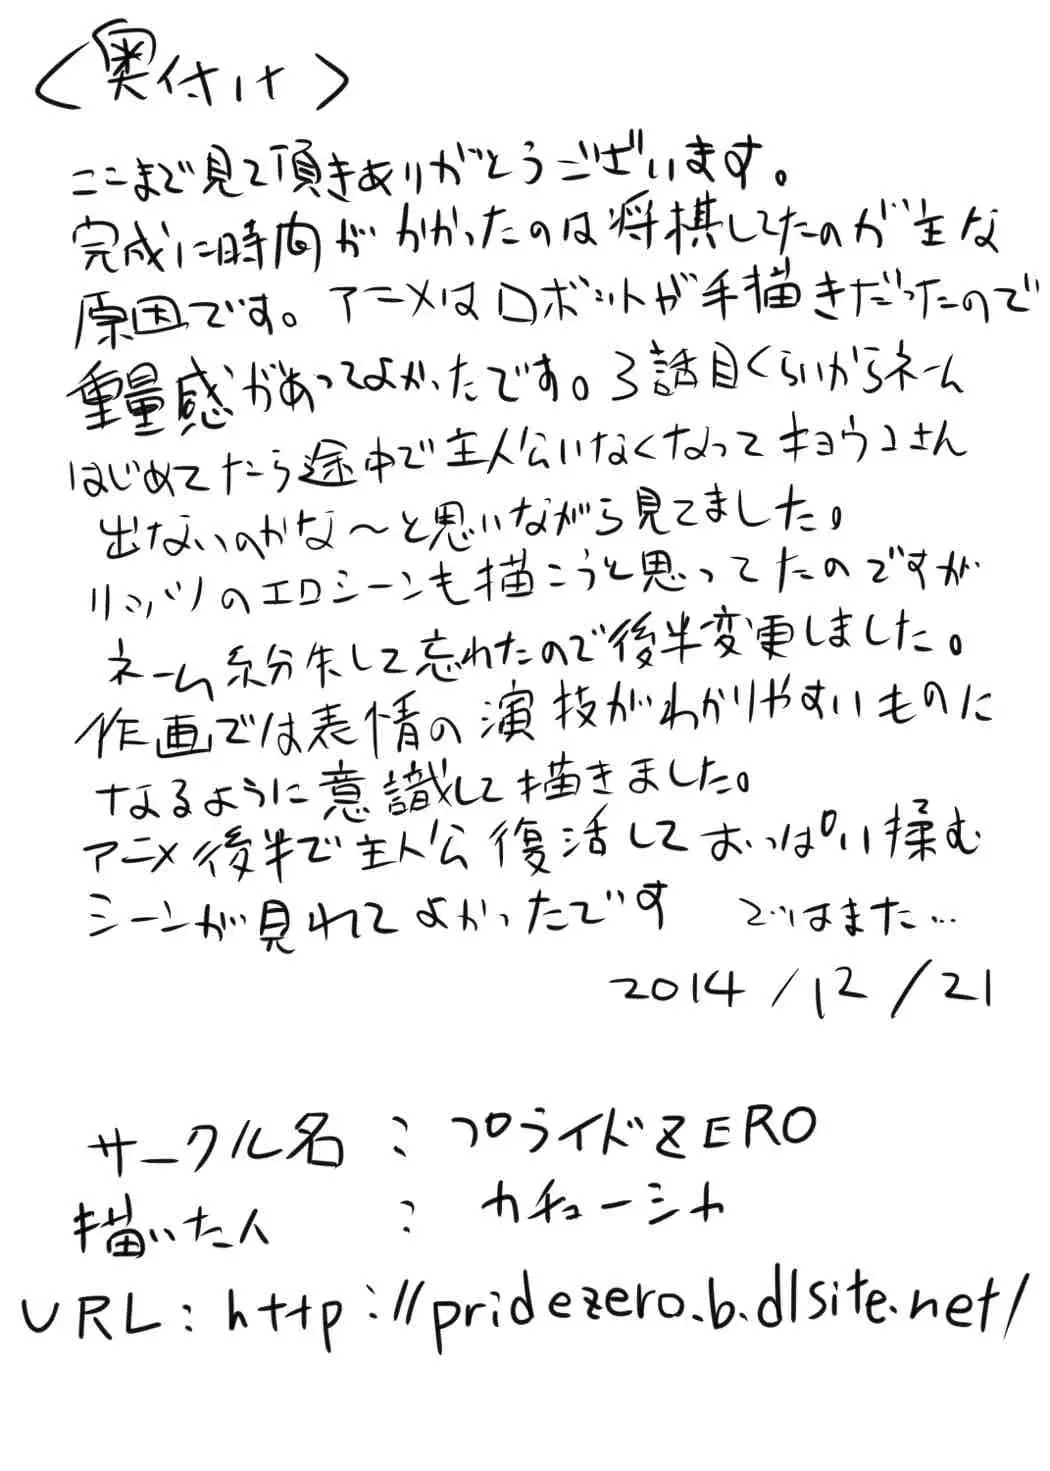 〈奥付け〉
ここまで見て頂きありがとうございます。
完成に時間がかかったのは将棋してたのが主な
原因です。アニメはロボットが手描きだったので
重量感があってよかったです。3話目くらいからネーム
はじめてたら途中で主人公いなくなってキョウコさん
出ないのかな～と思いながら見てました。
リッツのエロシーンも描こうと思ってたのですが
ネーム紛失して忘れたので後半変更しました。
作画では表情の演技がわかりやすいものに
なるように意識して描きました。
アニメ後半で主人公復活しておっぱい揉む
シーンが見れてよかったです ではまた…
2014/12/21
サークル名：プライドZERO
描いた人：カチューシャ
URL：http://pridezero.b.dlsite.net/